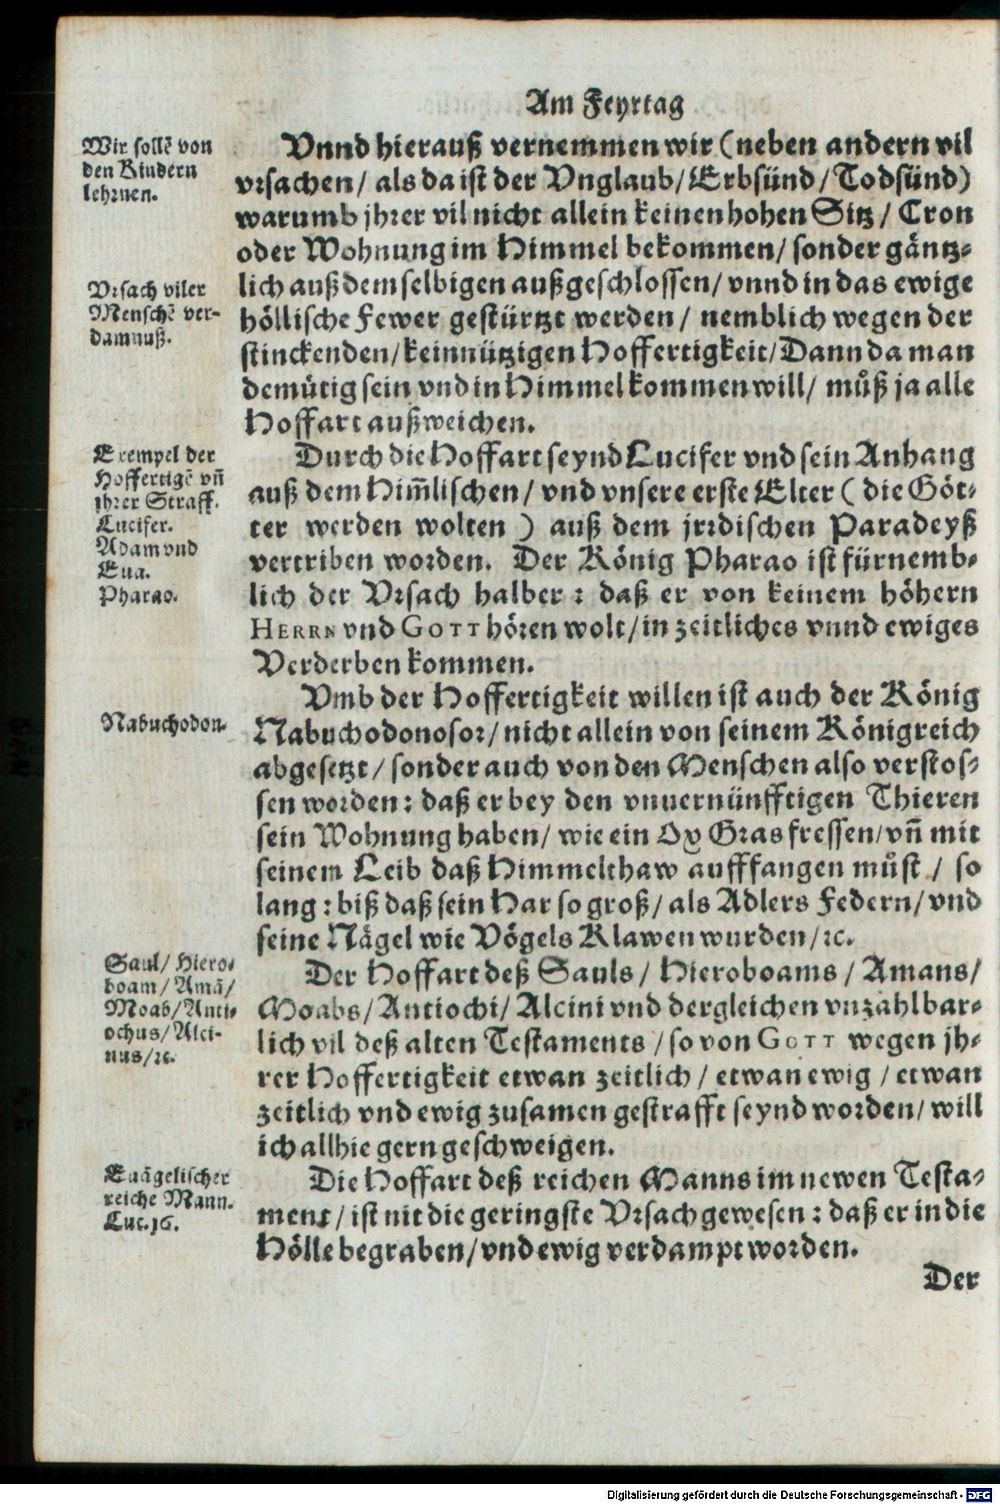 Am Feyrtag
Wir sollẽ von
den Kindern
lehrnen.
Vnnd hierauß vernemmen wir (neben andern vil
vrsachen/ als da ist der Vnglaub/ Erbsünd/ Todsünd)
warumb jhrer vil nicht allein keinen hohen Sitz/ Cron
oder Wohnung im Himmel bekommen/ sonder gäntz-
Vrsach viler
Menschẽ ver-
damnuß.
lich auß demselbigen außgeschlossen/ vnnd in das ewige
höllische Fewer gestürtzt werden/ nemblich wegen der
stinckenden/ keinnützigen Hoffertigkeit/ Dann da man
demütig sein vnd in Himmel kommen will/ můß ja alle
Hoffart außweichen.
Exempel der
Hoffertigẽ vñ
jhrer Straff.
Lucifer.
Adam vnd
Eua.
Pharao.
Durch die Hoffart seynd Lucifer vnd sein Anhang
auß dem Him̃lischen/ vnd vnsere erste Elter (die Göt-
ter werden wolten) auß dem jrrdischen Paradeyß
vertriben worden. Der König Pharao ist fürnemb-
lich der Vrsach halber: daß er von keinem höhern
HERRN vnd GOTT hören wolt/ in zeitliches vnnd ewiges
Verderben kommen.
Vmb der Hoffertigkeit willen ist auch der König
Nabuchodon.
Nabuchodonosor/ nicht allein von seinem Königreich
abgesetzt/ sonder auch von den Menschen also verstos-
sen worden: daß er bey den vnuernünfftigen Thieren
sein Wohnung haben/ wie ein Ox Gras fressen/ vñ mit
seinem Leib daß Himmelthaw aufffangen můst/ so
lang: biß daß sein Har so groß/ als Adlers Federn/ vnd
seine Nägel wie Vögels Klawen wurden/ ꝛc.
Saul/ Hiero-
boam/ Amã/
Moab/ Anti-
ochus/ Alci-
nus/ ꝛc.
Der Hoffart deß Sauls/ Hieroboams/ Amans/
Moabs/ Antiochi/ Alcini vnd dergleichen vnzahlbar-
lich vil deß alten Testaments/ so von GOTT wegen jh-
rer Hoffertigkeit etwan zeitlich/ etwan ewig/ etwan
zeitlich vnd ewig zusamen gestrafft seynd worden/ will
ich allhie gern geschweigen.
Euãgelischer
reiche Mann.
Luc. 16.
Die Hoffart deß reichen Manns im newen Testa-
ment/ ist nit die geringste Vrsach gewesen: daß er in die
Hölle begraben/ vnd ewig verdampt worden.
Der
Digitalisierung gefördert durch die Deutsche Forschungsgemeinschaft - DFG